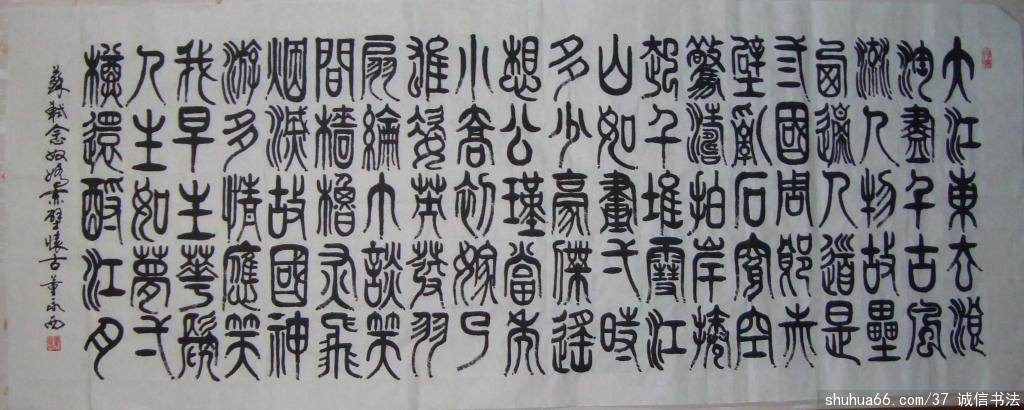 大江東去浪
淘盡千古風
流人物故壘
西邊人道是
三國周郎赤
壁亂石穿空
驚濤拍岸捲
起千堆雪江
山如畫一時
多少豪傑遙
想公瑾當年
小喬初嫁了
雄姿英發羽
扇綸巾談笑
間檣櫓灰飛
烟滅故國神
游多情應笑
我早生華髮
人生如夢一
樽還酹江月
蘇軾念奴嬌赤壁懷古 董永西
shuhua66.com/37 诚信书法